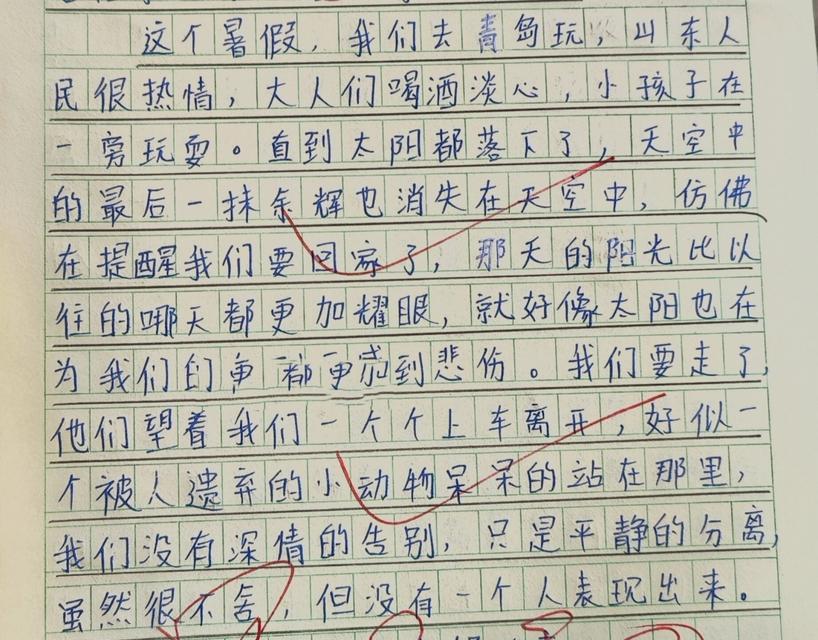 这个暑假，我们去青岛玩，山东人
民很热情，大人们喝酒淡心，小孩子在
一旁玩耍。直到太阳都落下了，天空中
的最后一抹余辉也消失在天空中，仿佛
在提醒我们要回家了，那天的阳光比以
往的哪天都更加耀眼，就好像太阳也在
为我们的争都更感到悲伤。我们要走了，
他们望着我们一个个上车离开，好似一
个被人遗弃的小动物呆呆的站在那里，
我们没有深情的告别，只是平静的分离，
虽然很不舍，但没有一个人表现出来。